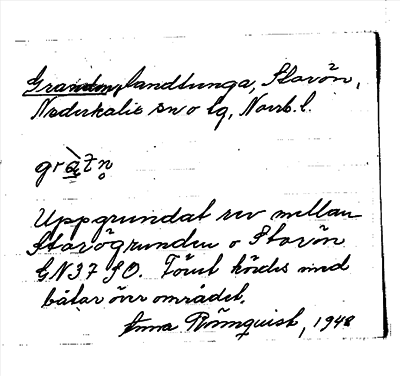 Grandon, landtunga, Storön,
Nederkalix sn o lg, Norrb. l.
Uppgrundat rev mellan
Storögrunden o Storön
GN37 SO. Förut kördes med
båtar över området.
Anna Rönnquist, 1948